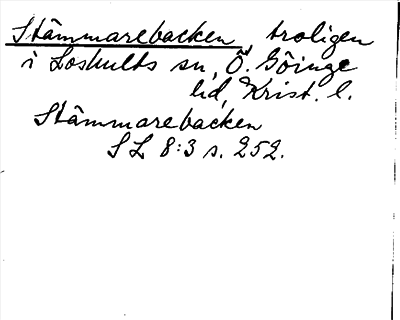 Stämmarebacken troligen
i Loshults sn, Ö. Göinge
hd, Krist. l.
Stämmarebacken
SL 8:3 s. 252.